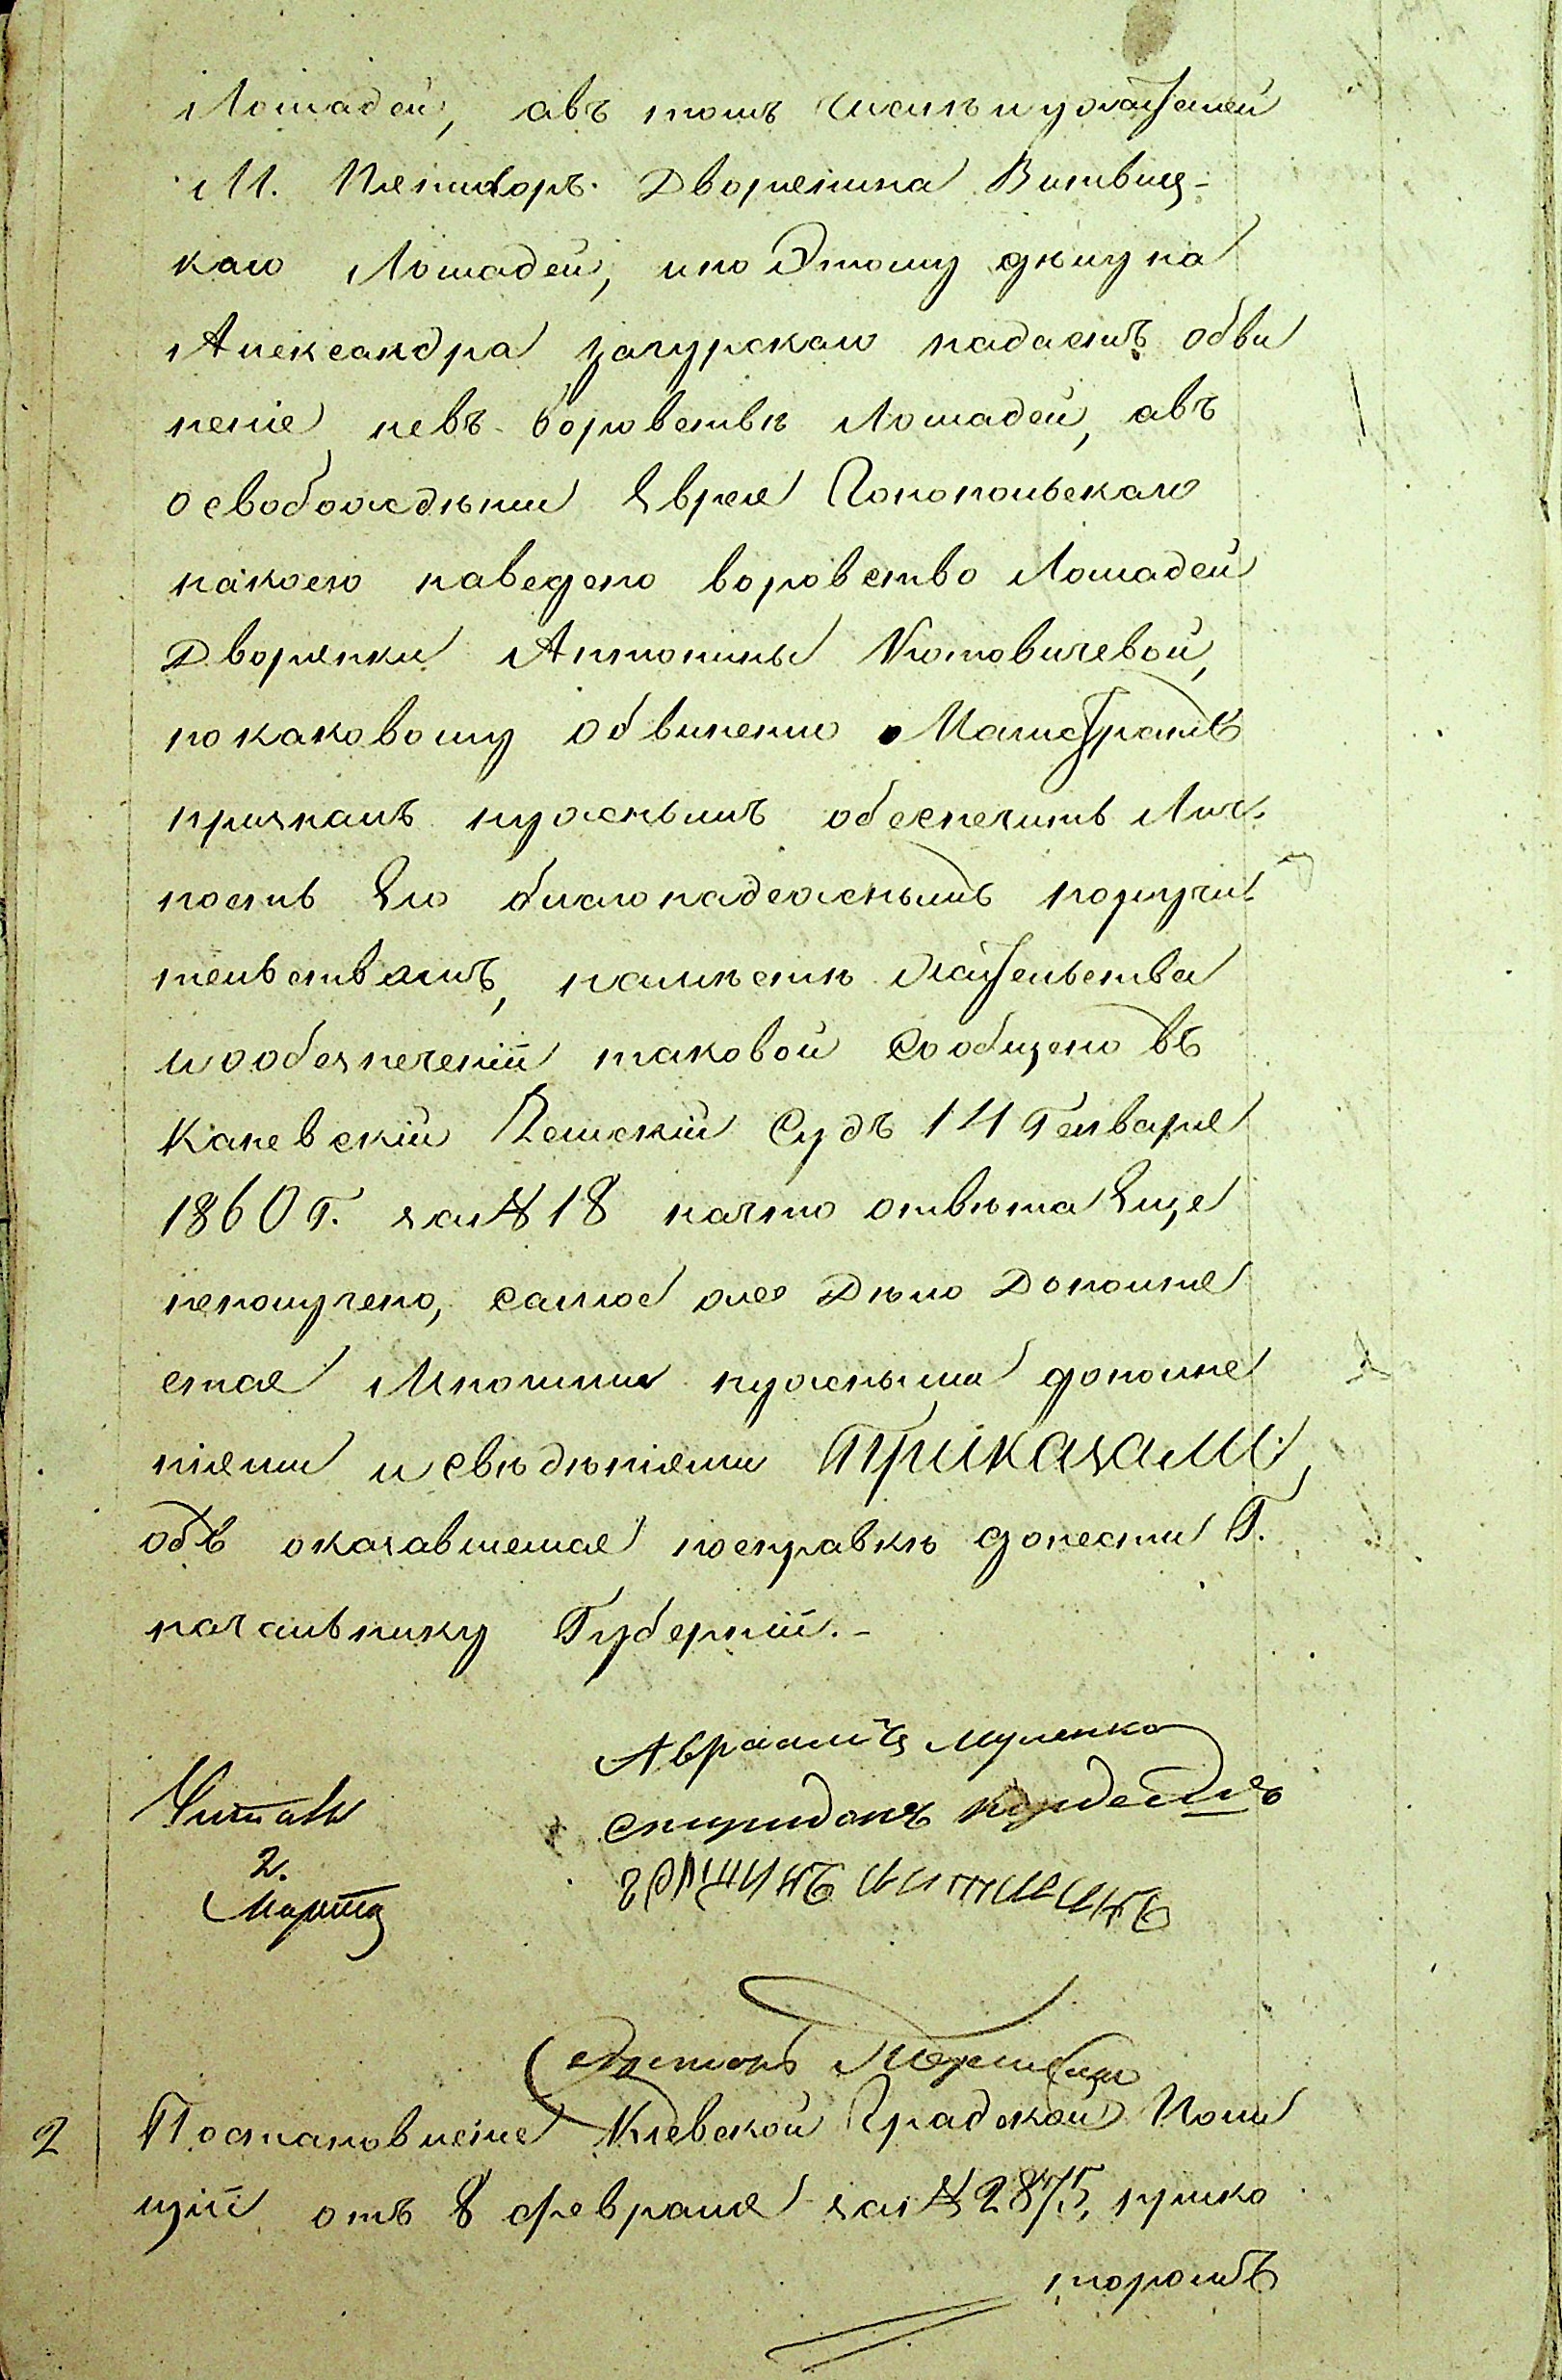 Лошадей, авъ томъ числѣ и ужителей
М. Пятигоръ Дворянина Витвиц-
каго Лошадей, ипо Этому дѣлу на
Александра Загурскаго падаетъ обви
неніе невъ воровствѣ Лошадей, авъ
освобожденіи Еврея Тонопольскаго
накоего наведено воровство Лошадей
Дворянки Антонины Котовичевой,
покаковому обвиненію Магистратъ
призналъ нужнымъ обеспечить Лич-
ность Его благонадежнымъ поручи-
тельствомъ, намѣстѣ жительства
и ообезпеченіи таковой Сообщено въ
Каневскій Земскій Судъ 14 Генваря
1860 г. за № 18 начто отвѣта Еще
неполучено, самое же Дѣло Дополня
ется Многими нужными дополне
ніями и свѣдѣніями Приказали,
объ оказавшемся посправкѣ донести Г.
начальнику Губерніи.-
Авраамъ Муленко
Спиридонъ
Читалъ
2.
Марта
2 Постановленіе Кіевской Градской Поли
ціи отъ 8 февраля за № 2875, прико
торомъ